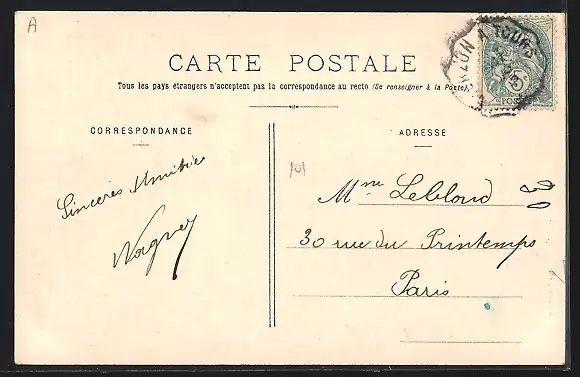 A
CARTE POSTALE
Tous les pays étrangers n'acceptent pas la correspondance au recto (Se renseigner à la Poste).
CORRESPONDANCE
Sincères Amitiés
Wagner
ADRESSE
101
Mme Leblond
30 rue du Printemps
Paris
A TOURS
5
POSTES